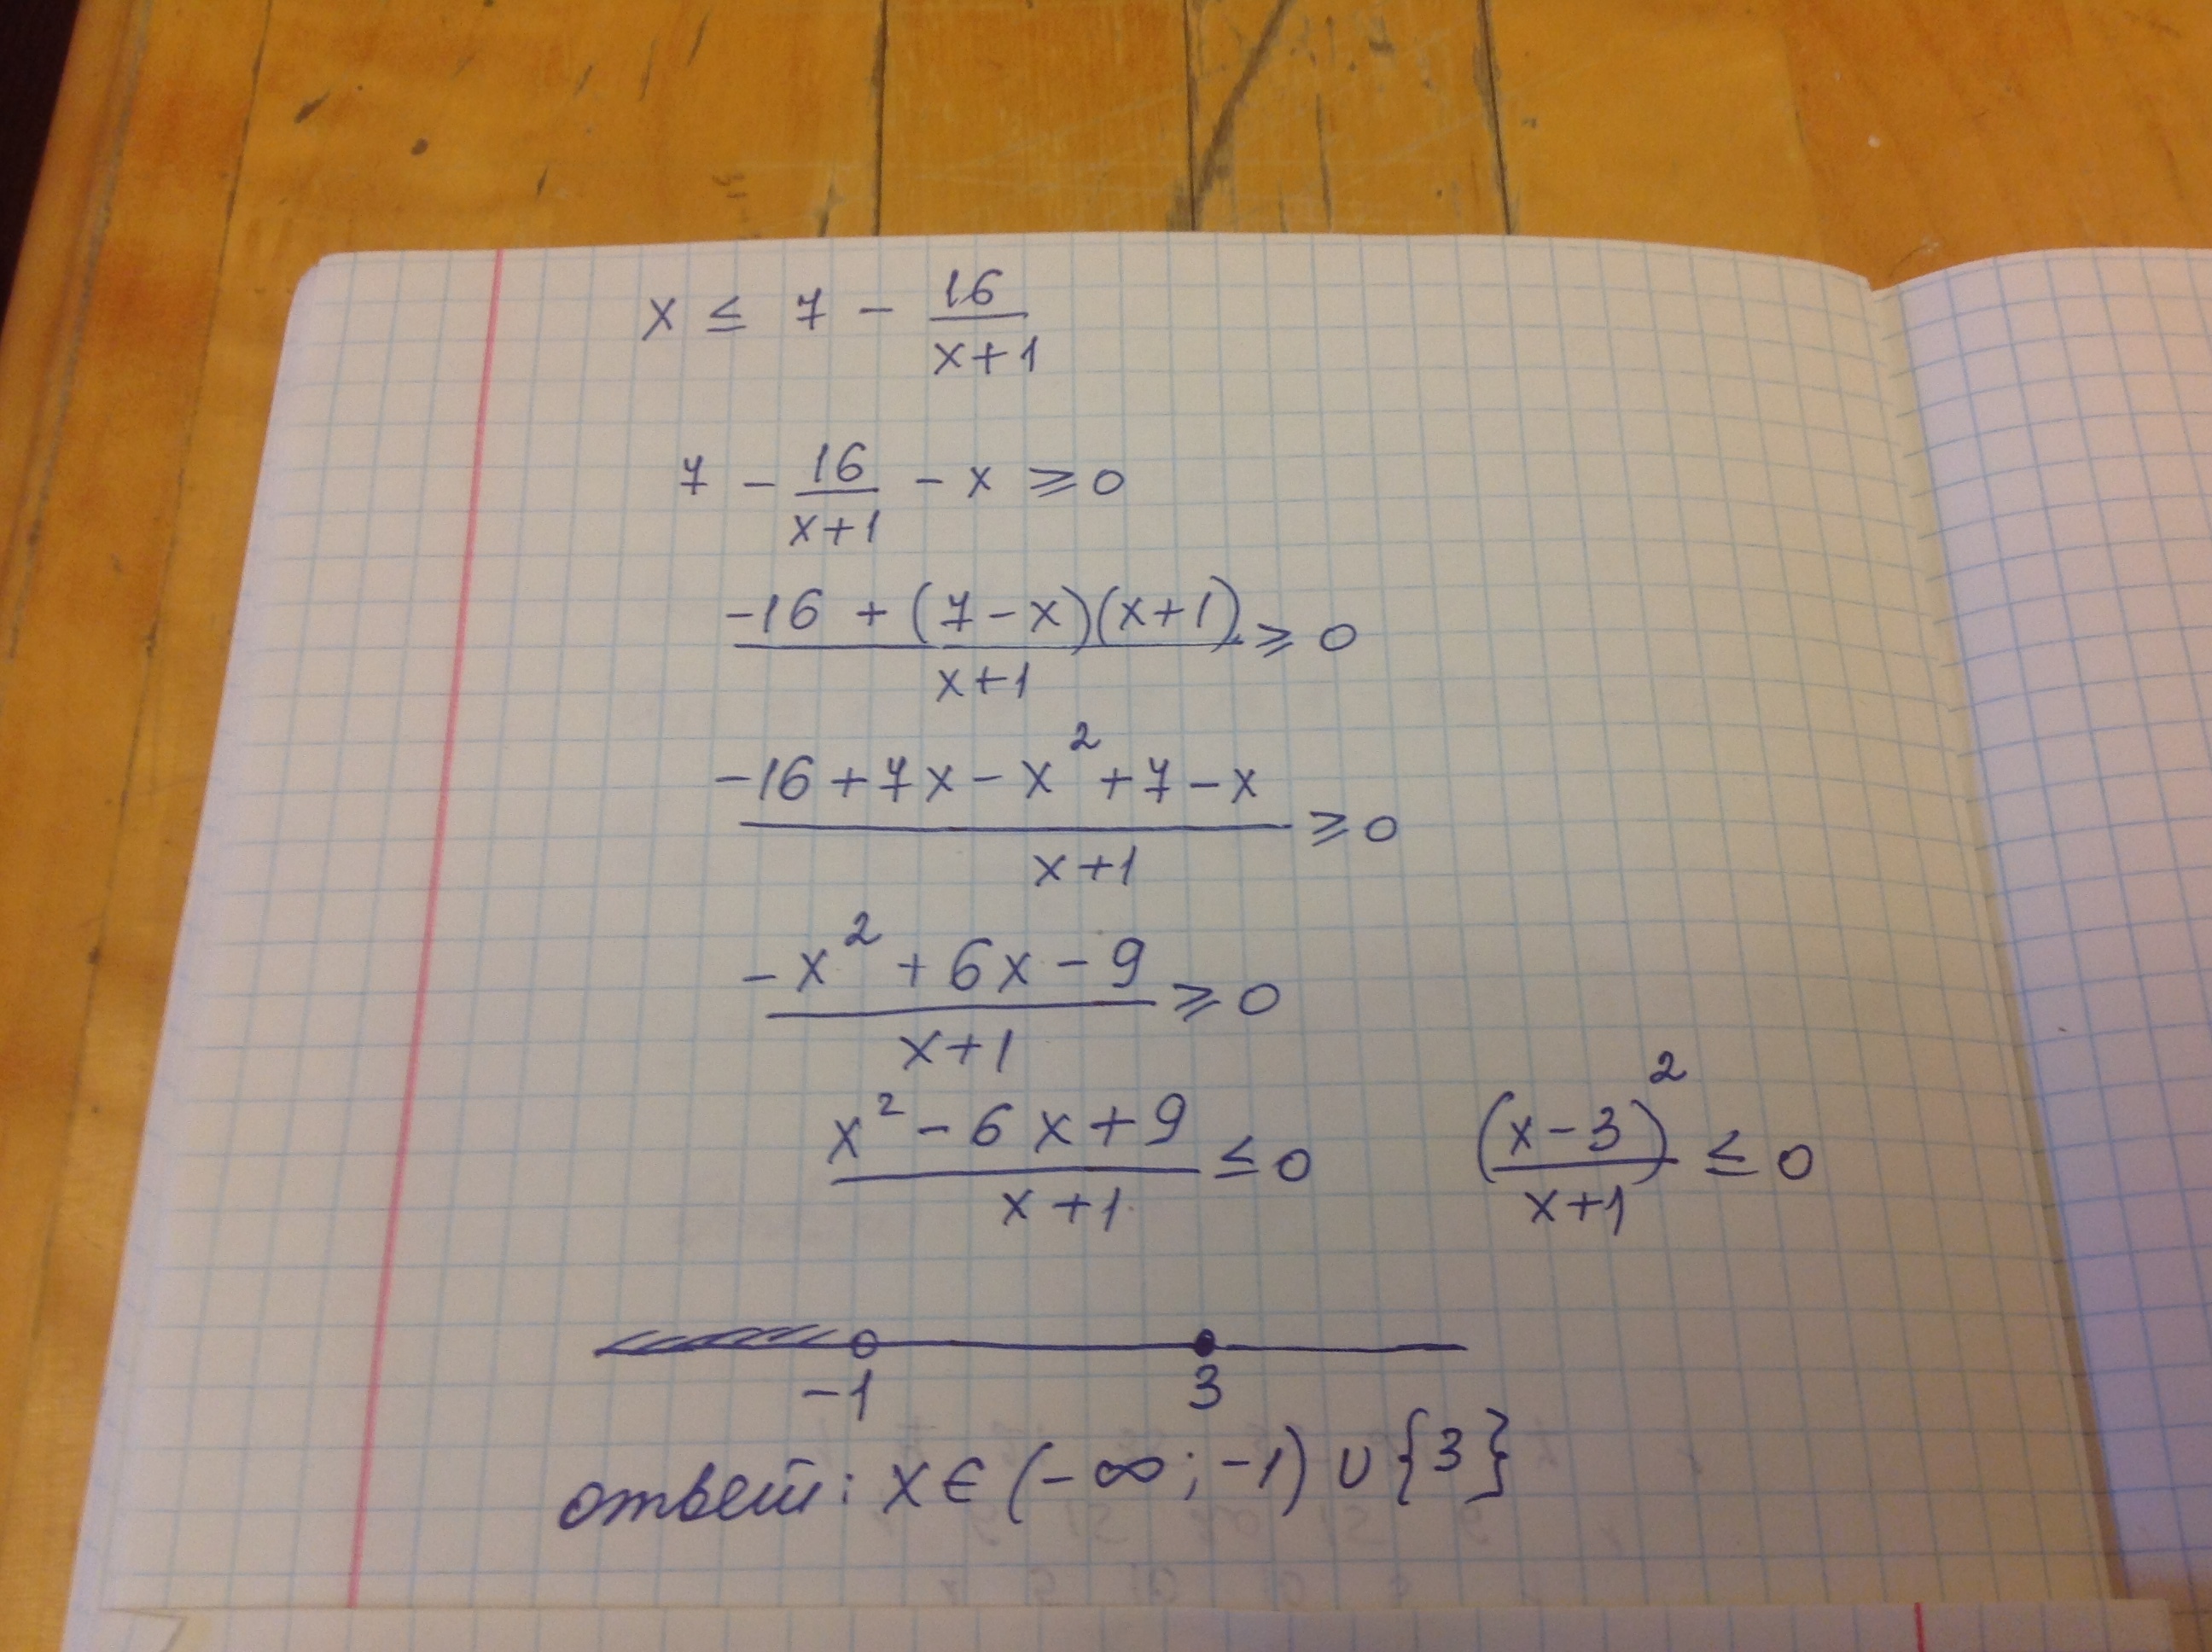 x ≤ 7 - 16/(x+1)
7 - 16/(x+1) - x ≥ 0
(-16 + (7-x)(x+1))/(x+1) ≥ 0
(-16 + 7x - x² + 7 - x)/(x+1) ≥ 0
(-x² + 6x - 9)/(x+1) ≥ 0
(x² - 6x + 9)/(x+1) ≤ 0 (x-3)²/(x+1) ≤ 0
-1 3
ответ: x ∈ (-∞; -1) ∪ {3}